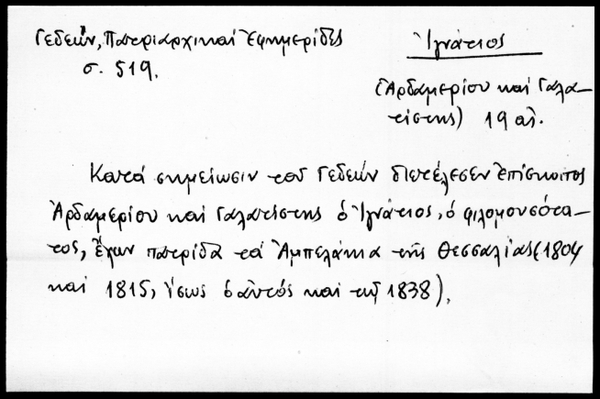 Γεδεών, Πατριαρχικαί Ἐφημερίδες
σ. 519.
Ἰγνάτιος
(Ἀρδαμερίου καί Γαλα-
τίστης) 19 αἰ.
Κατά σημείωσιν τοῦ Γεδεών διετέλεσεν ἐπίσκοπος
Ἀρδαμερίου καί Γαλατίστης ὁ Ἰγνάτιος, ὁ φιλομουσότα-
τος, ἔχων πατρίδα τά Ἀμπελάκια τῆς Θεσσαλίας (1804
καί 1815, ἴσως ὁ αὐτός καί τῷ 1838).